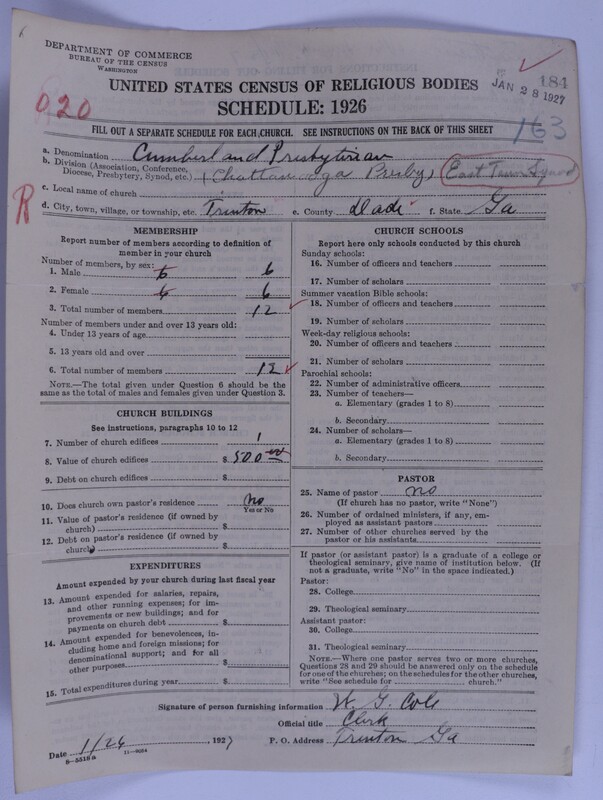 DEPARTMENT OF COMMERCE
BUREAU OF THE CENSUS
WASHINGTON
184
JAN 28 1927
UNITED STATES CENSUS OF RELIGIOUS BODIES
SCHEDULE: 1926
020
163
FILL OUT A SEPARATE SCHEDULE FOR EACH CHURCH. SEE INSTRUCTIONS ON THE BACK OF THIS SHEET
a. Denomination Cumberland Presbyterian
b. Division (Association, Conference, Diocese, Presbytery, Synod, etc.) (Chattanooga Presby) East Tenn Synod
R
c. Local name of church
d. City, town, village, or township, etc. Trenton e. County Dade f. State Ga
MEMBERSHIP
Report number of members according to definition of
member in your church
Number of members, by sex:
1. Male 6 6
2. Female 6 6
3. Total number of members 12
Number of members under and over 13 years old:
4. Under 13 years of age
5. 13 years old and over
6. Total number of members 12
NOTE.—The total given under Question 6 should be
same as the total of males and females given under Question 3.
CHURCH BUILDINGS
See instructions, paragraphs 10 to 12
7. Number of church edifices 1
8. Value of church edifices $ 500 00
9. Debt on church edifices $
10. Does church own pastor's residence No
Yes or No
11. Value of pastor's residence (if owned by
church) $
12. Debt on pastor's residence (if owned by
church) $
EXPENDITURES
Amount expended by your church during last fiscal year
13. Amount expended for salaries, repairs,
and other running expenses; for im-
provements or new buildings; and for
payments on church debt $
14. Amount expended for benevolences, in-
cluding home and foreign missions; for
denominational support; and for all
other purposes $
15. Total expenditures during year $
CHURCH SCHOOLS
Report here only schools conducted by this church
Sunday schools:
16. Number of officers and teachers
17. Number of scholars
Summer vacation Bible schools:
18. Number of officers and teachers
19. Number of scholars
Week-day religious schools:
20. Number of officers and teachers
21. Number of scholars
Parochial schools:
22. Number of administrative officers
23. Number of teachers—
a. Elementary (grades 1 to 8)
b. Secondary
24. Number of scholars—
a. Elementary (grades 1 to 8)
b. Secondary
PASTOR
25. Name of pastor no
(If church has no pastor, write "None")
26. Number of ordained ministers, if any, em-
ployed as assistant pastors
27. Number of other churches served by the
pastor or his assistants
If pastor (or assistant pastor) is a graduate of a college or
theological seminary, give name of institution below. (If
not a graduate, write "No" in the space indicated.)
Pastor:
28. College
29. Theological seminary
Assistant pastor:
30. College
31. Theological seminary
NOTE.—Where one pastor serves two or more churches,
Questions 28 and 29 should be answered only on the schedule
for one of the churches; on the schedules for the other churches,
write "See schedule for church."
Signature of person furnishing information W. G. Cole
Official title Clerk
Date 1/26, 1927 P. O. Address Trenton Ga
8—5518 a 11—9084